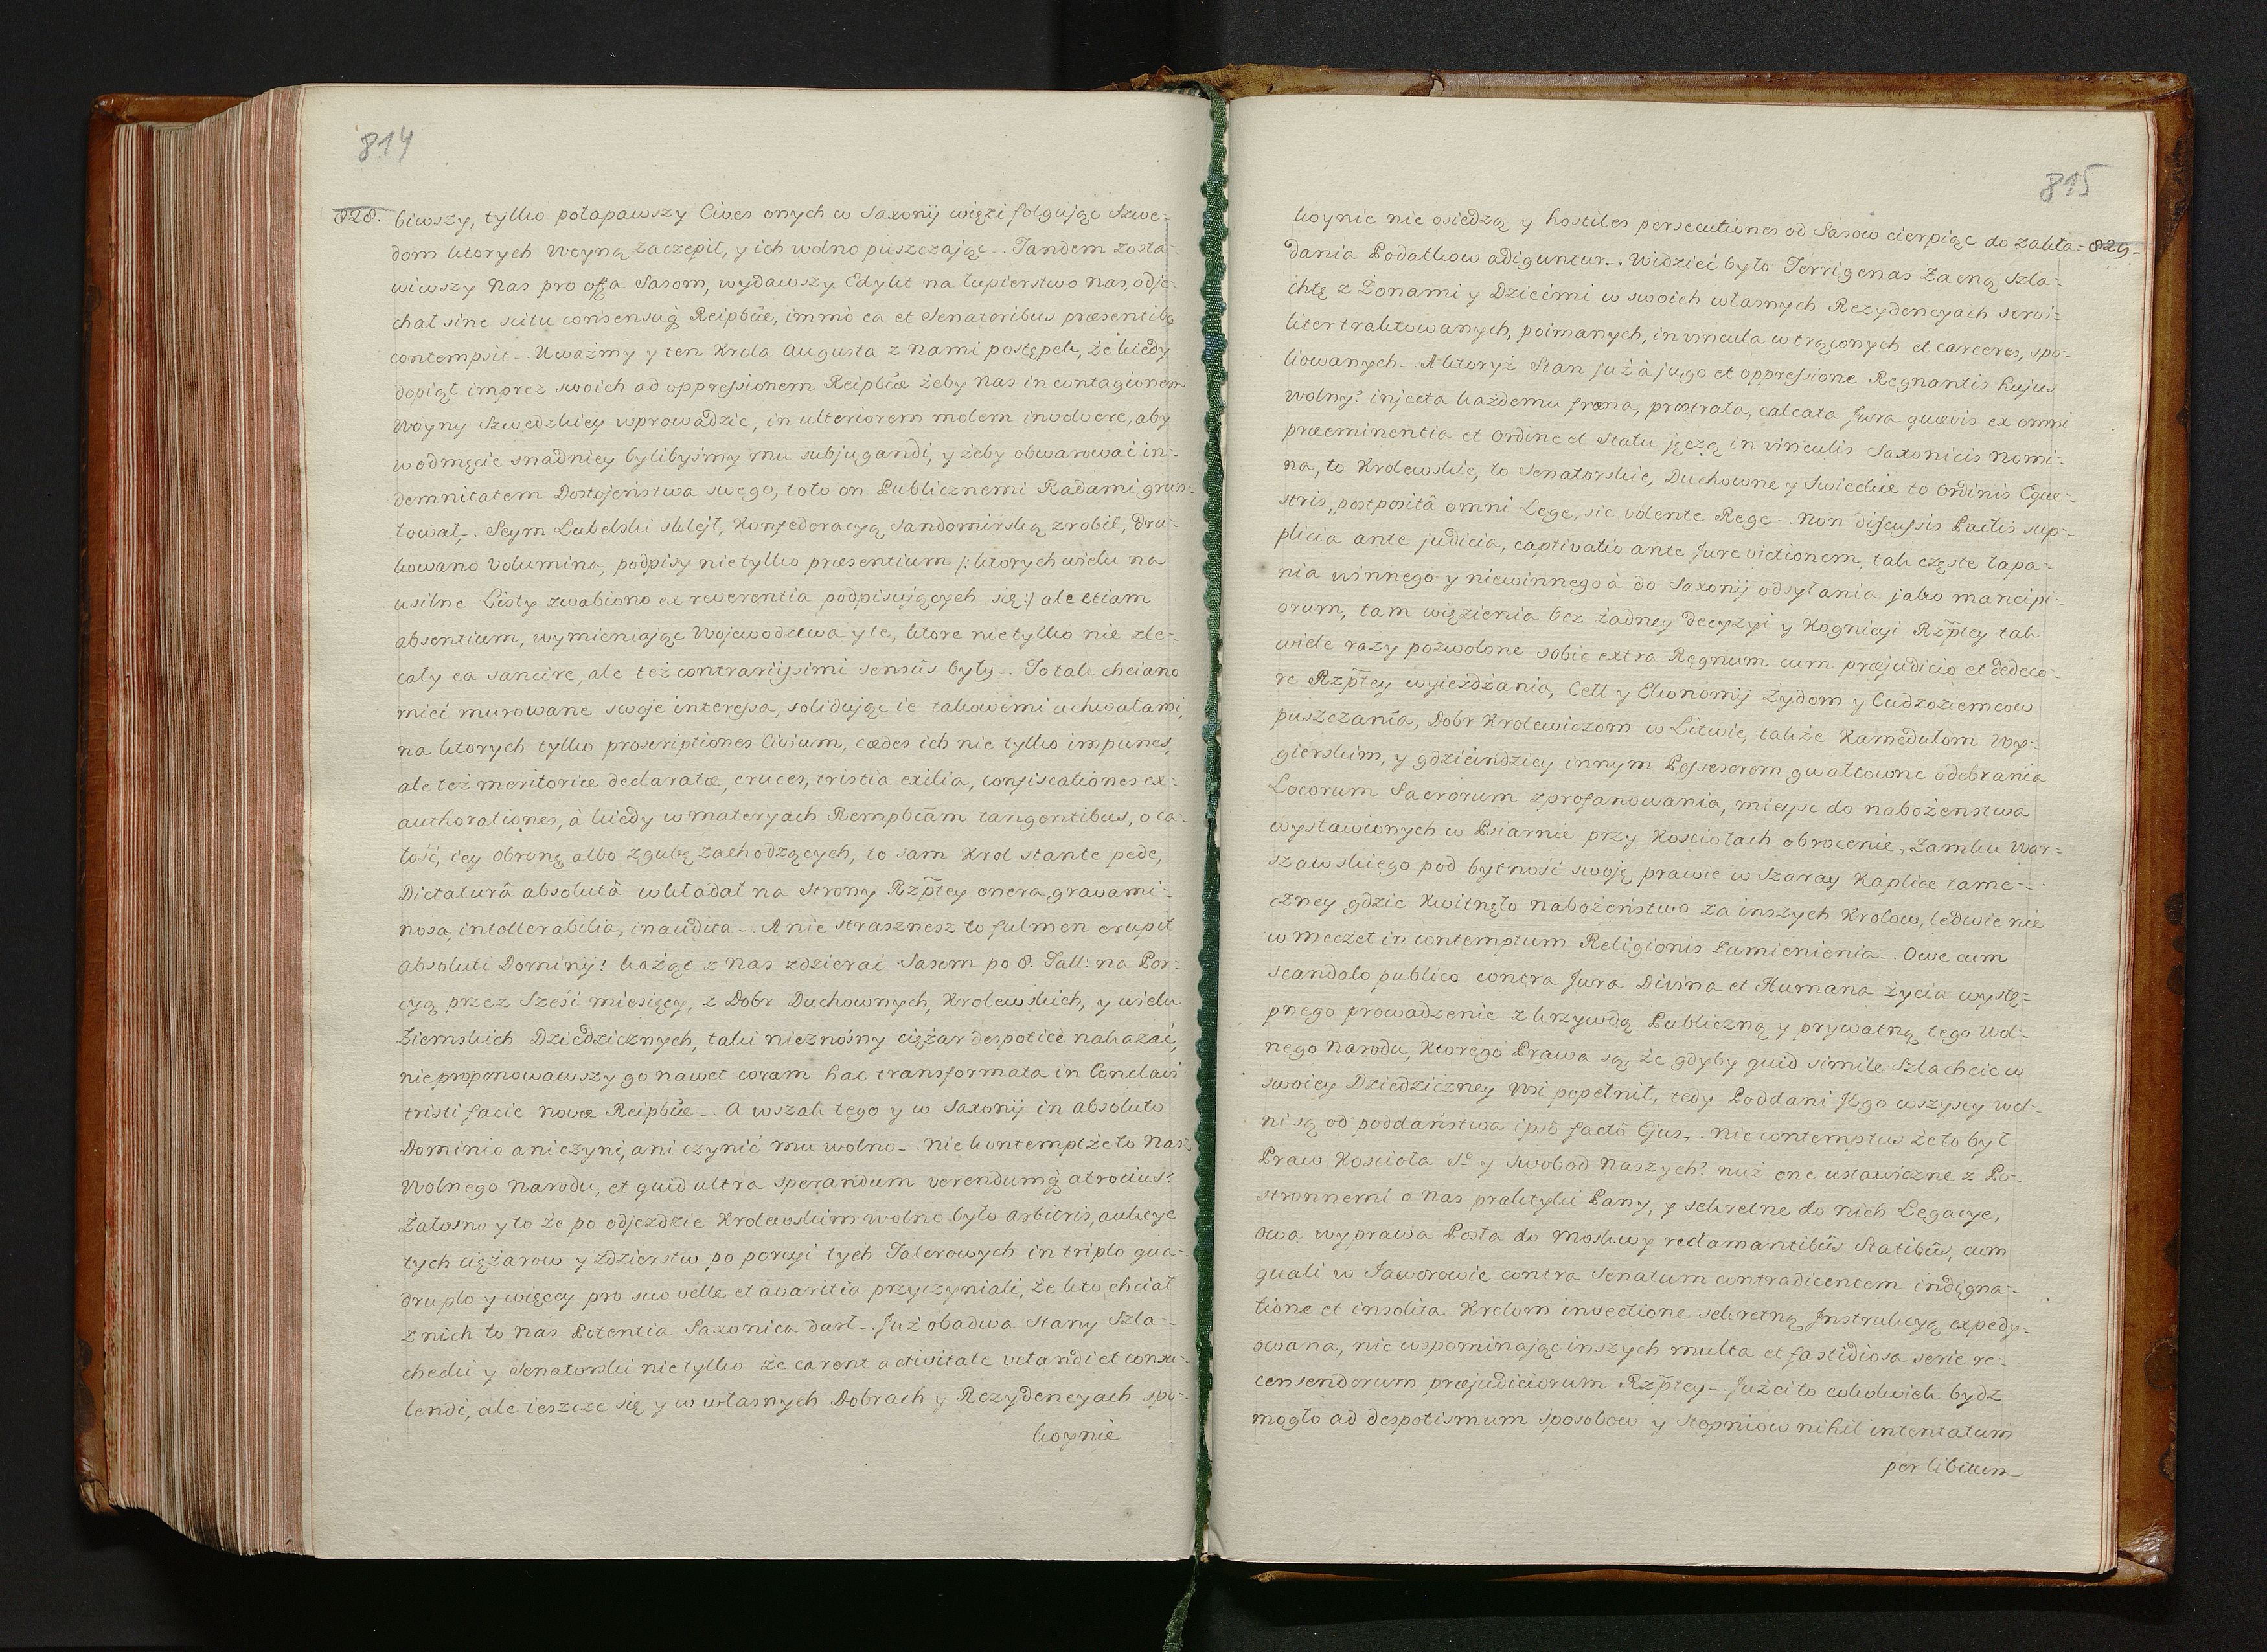 814
828.
biwszy, tylko połapawszy Cives onych w Saxonij więzi folgując Szwe-
dom ktorych Woyną zaczepił, y ich wolno puszczając.. Tandem zosta-
wiwszy Nas pro offa Sasom, wydawszy Edykt na łupierstwo nas, odje-
chał sine scitu consensuq̃ Reipbũe, immò ea et Senatoribus præsentibq
contempsit.. Uważmy y ten Krola Augusta z nami postępek, że kiedy
dopiąt imprez swoich ad oppressionem Reipbũe żeby nas in contagionem
Woyny Szwedzkiey wprowadzic, in ulteriorem molem involvere, aby
w odmęcie snadniey bylibyśmy mu subjugandi, y żeby obwarować in-
demnitatem Dostojeństwa swego, toto on Publicznemi Radami grun-
tował,. Seym Lubelski skleił, Konfederacyą Sandomirską zrobił, dru-
kowano Volumina, podpisy nietylko præsentium /: ktorych wielu na
usilne Listy zwabiono ex reverentia podpisujących się :/ ale etiam
absentium, wymieniając Wojewodztwa y te, ktore nietylko nie zle-
cały ea sancire, ale też contrarijssimi sensûs były.. To tak chciano
mieć murowane swoje interessa, solidując ie takowemi uchwałami,
na ktorych tylko proscriptiones Civium, cædes ich nie tylko impunes,
ale też meritoriæ declaratæ, cruces, tristia exilia, confiscationes ex-
authorationes, à kiedy w materyach Rempbcãm tangentibus, o ca-
łość, iey obronę albo zgubę zachodzących, to sam Krol stante pede,
Dictaturâ absolutâ wkładał na Strony Rzp̃tey onera gravami-
nosa, intollerabilia, inaudita.. A nie strasznesz to fulmen erupit
absoluti Dominij! każąc z nas zdzierać Sasom po 8. Tall: na Por-
cyą przez Sześć miesięcy, z Dobr Duchownych, Krolewskich, y wielu
Ziemskich Dziedzicznych, taki nieznośny ciężar despoticè nakazać,
nieproponowawszy go nawet coram hac transformata in Conclavi
tristi facie novæ Reipbũe.. A wszak tego y w Saxonij in absoluto
Dominio ani czyni, ani czynić mu wolno.. Nie kontempt że to Nas
Wolnego Narodu, et quid ultra sperandum verendumq̃ atrocius?
Żałosno y to że po odjezdzie Krolewskim wolno było arbitris, aukcye
tych ciężarow y zdzierstw po porcyi tych Talerowych in triplo qua-
druplo y więcey pro suo velle et avaritia przyczyniali, że kto chciał
z nich to nas Potentia Saxonica darł.. Już obadwa Stany Szla-
checki y Senatorski nietylko że carent activitate vetandi et consu-
lendi, ale ieszcze się y w własnych Dobrach y Rezydencyach spo-
koynie
815
829.
koynie nie osiedzą y hostiles persecutiones od Sasow cierpiąc do zakła-
dania Podatkow adiguntur.. Widzieć było Terrigenas Zacną Szla-
chtę z Żonami y Dziećmi w swoich własnych Rezydencyach servi-
liter traktowanych, poimanych, in vincula wtrąconych et carceres, spo-
liowanych.. A ktoryż Stan już à jugo et oppressione Regnantis hujus
wolny? injecta każdemu fræna, prostrata, calcata Jura quævis ex omni
præeminentia et Ordine et Statu jęczą in vinculis Saxonicis Nomi-
na, to Krolewskie, to Senatorskie, Duchowne y Swieckie to Ordinis Eque-
stris, postpositâ omni Lege, sic volente Rege.. Non discussis Pactis sup-
plicia ante judicia, captivatio ante Jure victionem, tak częste łapa-
nia winnego y niewinnego à do Saxonij odsyłania jako mancipi-
orum, tam więzienia bez żadney decyzyi y Kognicyi Rzp̃tey tak
wiele razy pozwolone sobie extra Regnum cum præjudicio et dedeco-
re Rzp̃tey wyieżdżania, Cell y Ekonomij Żydom y Cudzoziemcow
puszczania, Dobr Krolewiczom w Litwie, także Kamedułom Wy-
gierskim, y gdzieindziey innym Possesorom gwałtowne odebrania
Locorum Sacrorum zprofanowania, mieysc do nabożenstwa
wystawionych w Psiarnie przy Kościołach obrocenie, Zamku War-
szawskiego pod bytność swoję prawie w Szaray Kaplice tame-
czney gdzie Kwitnęło nabożeństwo za inszych Krolow, ledwie nie
w Meczet in contemptum Religionis zamienienia.. Owe cum
scandalo publico contra Jura Divina et Humana życia wystę-
pnego prowadzenie z krzywdą Publiczną y prywatną tego Wol-
nego Narodu, Ktorego Prawa są, że gdyby quid simile Szlachcic w
swoiey Dziedziczney Wsi popełnił, tedy Poddani Jego wszyscy wol-
ni są od poddaństwa ipsô factô Ejus,. Nie contemptus że to był
Praw Kościoła So y Swobod Naszych? nuż one ustawiczne z Po-
stronnemi o nas praktyki Pany, y sekretne do nich Legacye,
owa wyprawa Posła do Moskwy reclamantibûs Statibûs, cum
quali w Jaworowie contra Senatum contradicentem indigna-
tione et insolita Krolom invectione sekretną Instrukcyą expedy-
owana, nie wspominając inszych multa et fastidiosa serie re-
censendorum præjudiciorum Rzp̃tey.. Jużci to cokolwiek bydz
mogło ad despotismum sposobow y stopniow nihil intentatum
per libitum